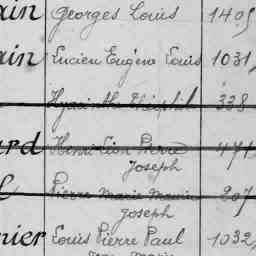 ain Georges Louis 1405
ain Lucien Eugène Louis 1031,
Hyacinthe Théophil 338
ard Henri Léon Pierre 471
Joseph
Pierre Marie 207
Joseph
nier Louis Pierre Paul 1032,